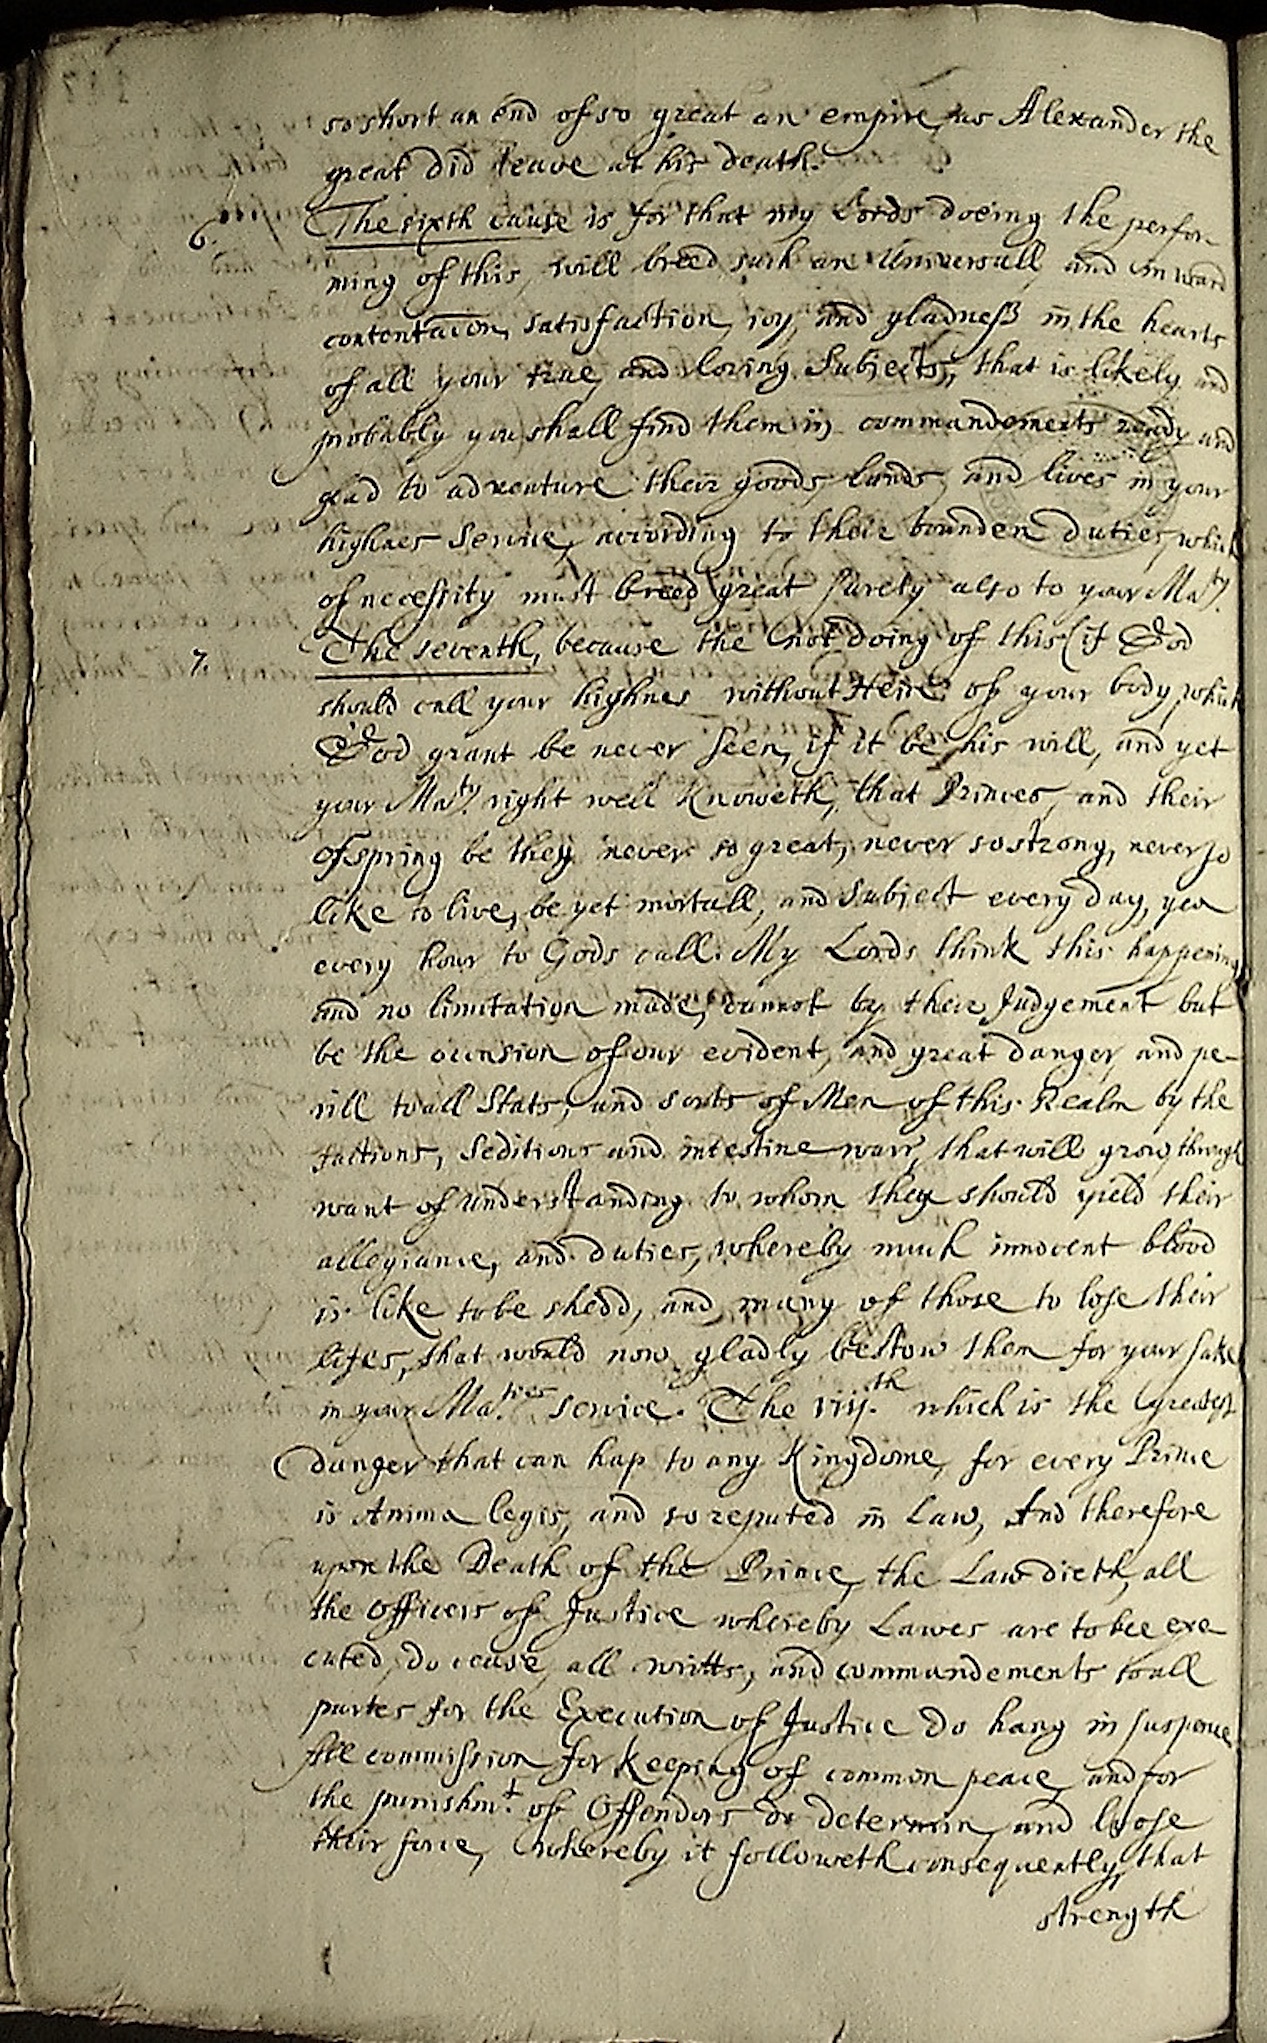 so short an end of so great an empire, as Alexander the
great did leave at his death.
6. The sixth cause is for that my Lords doeing the perfor-
ming of this, will breed such an Universall, and inward
contentac̄on, satisfaction, ioy, and gladneß in the hearts
of all your true, and loving Subjects, that is likely and
probably you shall find them in commandements ready and
glad to adventure their goods, lands, and lives in your
highnes Service, according to their bounden duties, which
of necessity must breed great surety also to your Ma.ty
7. The seventh, because the not doing of this (if God
should call your highnes without Heire of your body, which
God grant be never seen, if it be his will, and yet
your Ma.ty right well Knoweth, that Princes, and their
ofspring be they never so great, never so strong, never so
like to live, be yet mortall, and Subject every day, yea
every hour to Gods call. My Lords think this happening
and no limitation made, cannot by their Judgement but
be the occasion of our evident, and great danger, and pe-
rill to all Stats, and sorts of Men of this Realm by the
factions, Seditions and intestine warr, that will grow, through
want of understanding to whom they should yield their
allegiance, and duties, whereby much innocent blood
is like to be shedd, and many of those to lose their
lifes, that would now gladly bestow them for your sake
in your Ma.ties service. The viij.th which is the greatest
danger that can hap to any Kingdome, for every Prince
is Anima legis, and so reputed in Law, And therefore
upon the Death of the Prince, the Law dieth, all
the Officers of Justice whereby Lawes are to bee exe-
cuted, do cease, all writts, and commandements to all
partes for the Execution of Justice do hang in suspence
All commission for keeping of common peace, and for
the punishm.t of Offendors do determin, and loose
their force, whereby it followeth consequently, that
strength